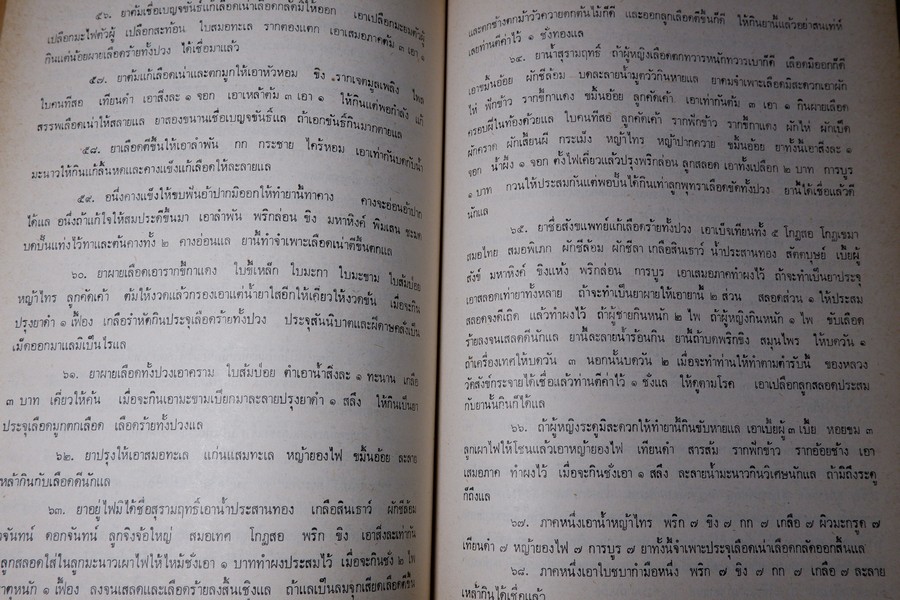 ๕๖. ยาต้มเชื่อเบญจขันธ์แก้เลือดเน่าเลือดกลัดมิให้ออก เอาเปลือกมะยมตัวผู้
เปลือกมะไฟตัวผู้ เปลือกสะท้อน ใบสมอทะเล รากตองแตก เอาเสมอภาคต้ม ๓ เอา ๑
กินแต่น้อยผายเลือดร้ายทั้งปวง ได้เชื่อมาแล้ว
๕๗. ยาต้มแก้เลือดเน่าและตกมูกให้เอาหัวหอม ขิง รากเจตมูลเพลิง ไพล
ใบคนทีสอ เทียนดำ เอาสิ่งละ ๑ จอก เอาเหล้าต้ม ๓ เอา ๑ ให้กินแต่พอกำลัง แก้
สรรพเลือดเน่าให้สลายแล ยาสองขนานเชื่อเบญจขันธ์แล ถ้าเอกขันธ์กินมากตายแล
๕๘. ยาเลือดตีขึ้นให้เอาลำพัน กก กระชาย ไคร้หอม เอาเท่ากันบดกับน้ำ
มะนาวให้กินแก้ลิ้นหดและคางแข็งแก้เลือดให้ละลายแล
๕๙. อนึ่งคางแข็งให้ขบฟันอ้าปากมิออกให้ทำยานี้ทาคาง คางจะอ่อนอ้าปาก
ได้แล อนึ่งถ้าแก้ใจให้สมประดีขึ้นมา เอาลำพัน พริกล่อน ขิง มหาหิงค์ พิมเสน ชะมด
บดปั้นแท่งไว้ทาและต้นคางทั้ง ๒ คางอ่อนแล ยานี้ทำจำเพาะเลือดเน่าตีขึ้นดีนักแล
๖๐. ยาผายเลือดเอารากขี้กาแดง ใบขี้เหล็ก ใบมะกา ใบมะขาม ใบส้มป่อย
หญ้าไทร ลูกคัดเค้า ต้มให้งวดแล้วกรองเอาแต่น้ำยาใส่อีกให้เคี่ยวให้งวดข้น เมื่อจะกิน
ปรุงยาดำ ๑ เฟื้อง เกลือรำหัดกินประจุเลือดร้ายทั้งปวง ประจุสันนิบาตและฝีดาษลงเป็น
เม็ดออกมาแลมิเป็นไรแล
๖๑. ยาผายเลือดทั้งปวงเอาคราม ใบส้มป่อย ตำเอาน้ำสิ่งละ ๑ ทะนาน เกลือ
๓ บาท เคี่ยวให้ค้น เมื่อจะกินเอามะขามเปียกมาละลายปรุงยาดำ ๑ สลึง ให้กินเป็นยา
ประจุเลือดมูกตกเลือด เลือดร้ายทั้งปวงแล
๖๒. ยาปรุงให้เอาสมอทะเล แก่นแสมทะเล หญ้ายองไฟ ขมิ้นอ้อย ละลาย
เหล้ากินกับเลือดดีนักแล
๖๓. ยาอยู่ไฟมิได้ชื่อสุรามฤทธิ์เอาน้ำประสานทอง เกลือสินเธาว์ ผักชีล้อม
จันทน์ ดอกจันทน์ ลูกจิงจ้อใหญ่ สมอเทศ โกฎสอ พริก ขิง เอาสิ่งละเท่ากัน
ลูกสลอดใส่ในลูกมะนาวเผาไฟให้ไหม้ชั่งเอา ๑ บาททำผงประสมไว้ เมื่อจะกินชั่ง ๒ ไพ
ธาตุหนัก ๑ เฟื้อง ลงจนเสลดและเลือดร้ายลงสิ้นเชิงแล ถ้าแลเป็นลมจุกเสียดเลือดตีขึ้น
และตกช้างตกม้าวัวควายตกต้นไม้ก็ดี และออกลูกเลือดตีขึ้นก็ดี ให้กินยานี้แล้วอย่าสนเท่ห์
เลยท่านตีค่าไว้ ๑ ชั่งทองแล
๖๔. ยาน้ำสุรามฤทธิ์ ถ้าผู้หญิงเลือดตกทวารหนักทวารเบาก็ดี เลือดมิออกก็ดี
เอาขมิ้นอ้อย ผักชีล้อม บดละลายน้ำมูตวัวกินหายแล ยาต้มจำเพาะเลือดมิสะดวกเอาผัก
ไห่ พักข้าว รากขี้กาแดง ขมิ้นอ้อย ลูกคัดเค้า เอาเท่ากันต้ม ๓ เอา ๑ กินผายเลือด
ครอบฝีในท้องด้วยแล ใบคนทีสอ ลูกคัดเค้า รากพักข้าว รากขี้กาแดง ผักไห่ ผักเป็ด
ผักคราด ผักเสี้ยนผี กระเม็ง หญ้าไทร หญ้าปากควาย ขมิ้นอ้อย ยาทั้งนี้เอาสิ่งละ ๑
จอก น้ำผึ้ง ๑ จอก ตั้งไฟเคี่ยวแล้วปรุงพริกล่อน ลูกสลอด เอาทั้งเปลือก ๒ บาท การบูร
๑ บาท กวนให้ประสมกันแต่พอปั้นได้กินเท่าลูกพุทราเลือดขัดทั้งปวง ยานี้ได้เชื่อแล้วดี
นักแล
๖๕. ยาชื่อสังขแพทย์แก้เลือดร้ายทั้งปวง เอาเบ็จเทียนทั้ง ๕ โกฎสอ โกฎเขมา
สมอไทย สมอพิเภก ผักชีล้อม ผักชีลา เกลือสินเธาว์ น้ำประสานทอง สัตตบุษย์ เบี้ยผู้
สังข์ มหาหิงค์ ขิงแห้ง พริกล่อน การบูร เอาเสมอภาคทำผงไว้ ถ้าจะทำเป็นยาประจุ
เอาสลอกเท่ายาทั้งหลาย ถ้าจะทำเป็นยาผายให้เอายานี้ ๒ ส่วน สลอดส่วน ๑ ให้ประสม
สลอดจงดีเถิด แล้วทำผงไว้ ถ้าผู้ชายกินหนัก ๒ ไพ ถ้าผู้หญิงกินหนัก ๑ ไพ ขับเลือด
ร้ายลงจนเสลดดีนักแล ยานี้ละลายน้ำร้อนกิน ยานี้ถ้าบดพริกขิง สมุนไพร ให้บดวัน ๑
ถ้าเครื่องเทศให้บดวัน ๓ นอกนั้นบดวัน ๒ เมื่อจะทำท่านให้ทำตามตำรับนี้ ของหลวง
วัดสังข์กระจายได้เชื่อแล้วท่านตีค่าไว้ ๑ ชั่งแล ให้ดูตามโรค เอาเปลือกลูกสลอดประสม
กับยานั้นกินก็ได้แล
๖๖. ถ้าผู้หญิงระดูมิสะดวกให้ทำยานี้กินขับหายแล เอาเบี้ยผู้ ๓ เบี้ย หอยขม ๓
ลูกเผาไฟให้โชนแล้วเอาหญ้ายองไฟ เทียนดำ สารส้ม รากพักข้าว รากอ้อยช้าง เอา
เสมอภาค ทำผงไว้ เมื่อจะกินชั่งเอา ๑ สลึง ละลายน้ำมะนาวกินวิเศษนักแล ถ้ามิถึงระดู
ก็ถึงแล
๖๗. ภาคหนึ่งเอาน้ำหญ้าไทร พริก ๗ ขิง ๗ กก ๗ เกลือ ๗ ผิวมะกรูด ๗
เทียนดำ ๗ หญ้ายองไฟ ๗ การบูร ๗ ยาทั้งนี้จำเพาะประจุเลือดเน่าเลือดกลัดออกสิ้นแล
๖๘. ภาคหนึ่งเอาใบชบากำมือหนึ่ง พริก ๗ ขิง ๗ กก ๗ เกลือ ๗ ละลาย
เหล้ากินได้เชื่อแล้ว